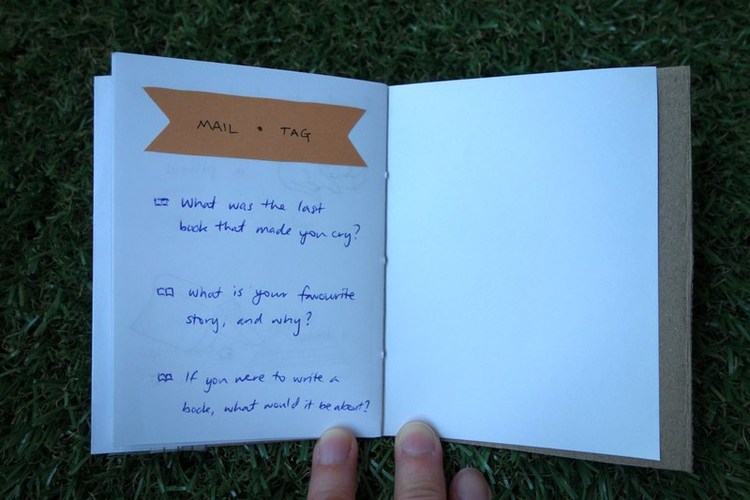 MAIL • TAG
What was the last
book that made you cry?
What is your favourite
story, and why?
If you were to write a
book, what would it be about?